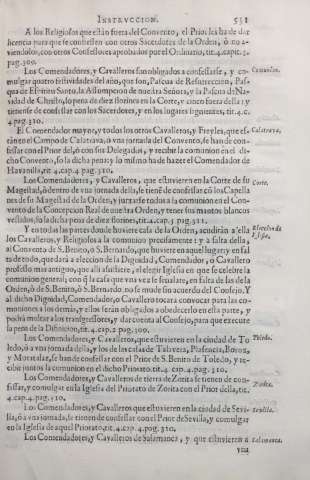 INSTRVCCION. 531
A los Religiosos que estan fuera del Convento, el Prior les ha de dar
licencia para se confiessen con otros Sacerdotes de la Orden, ò no a-
viendolos, con otros Confessores aprobados por el Ordinario, tit.4. capit.5.
pag.309.
Los Comendadores, y Cavalleros son obligados a confessarse, y co-
mulgar quatro festividades del año, que son, Pascua de Resurreccion, Pas-
qua de Espiritu Santo, la Assumpcion de nuestra Señora, y la Pascua de Na-
vidad de Christo, so pena de diez florines en la Corte, y cinco fuera della: y
tienense de confessar con los Sacerdotes, y en los lugares siguientes, tit.4. c.
4. pag.310.
El Comendador mayor, y todos los otros Cavalleros, y Freyles, que es-
tàn en el Campo de Calatrava, o vna jornada del Convento, se han de con-
fessar con el Prior del, ò con sus Delegados, y recebir la comunion en el di-
cho Convento, so la dicha pena: y lo mismo ha de hazer el Comendador de
Havanilla, tit.4. cap.4. pag.310.
Los Comendadores, y Cavalleros, que estuvieren en la Corte de su
Magestad, ò dentro de vna jornada della, se tiene de confessar cõ los Capella
nes de su Magestad de la Orden, y juntarse todos a la comunion en el Con-
vento de la Concepcion Real de nuestra Orden, y tener sus mantos blancos
vestidos, so la dicha pena de diez florines, tit.4. cap.3. pag.311.
Y en todas las partes donde huviere casa de la Orden, acudiràn a ella
los Cavalleros, y Religiosos a la comunion precisamente: y a falta della,
al Convento de S. Benito, ò S. Bernardo, que huviere en aquel lugar; y en fal
ta de todo, quedarà a eleccion de la Dignidad, Comendador, o Cavallero
professo mas antiguo, que alli assistiere, el elegir Iglesia en que se celebre la
comunion general; con q̃ la casa que vna vez se señalare, en falta de las de la
Orden, ò de S. Benito, ò S. Bernardo, no se mude sin acuerdo del Consejo. Y
al dicho Dignidad, Comendador, o Cavallero tocarà convocar para las co-
muniones a los demàs, y ellos seràn obligados a obedecerlo en esta parte, y
podrà multar a los transgressores, y dar cuenta al Consejo, para que execute
la pena de la Difinicion, tit.4. cap.2. pag.309.
Los Comendadores, y Cavalleros, que estuvieren en la ciudad de To
ledo, ò a vna jornada della, y los de las casas de Talavera, Plasencia, Bovos,
y Moratalaz, se han de confessar con el Prior de S. Benito de Toledo, y re-
cibir juntos la comunion en el dicho Priorato, tit.4. cap.4. pag.310.
Los Comendadores, y Cavalleros de tierra de Zorita se tienen de con-
fessar, y comulgar en la Iglesia del Priorato de Zorita con el Prior della, tit.
4. cap.4. pag.310.
Los Comendadores, y Cavalleros que estuvieren en la ciudad de Sevi-
lla, ò a vna jornada, se tienen de confessar con el Prior de Sevilla, y comulgar
en la Iglesia de aquel Priorato, tit.4. cap.4. pag.310.
Los Comendadores, y Cavalleros de Salamanca, y que estuvieren a
vna
Comunion.
Calatrava.
Corte.
Eleccion de
Iglesia.
Toledo.
Zorita.
Sevilla.
Salamanca.